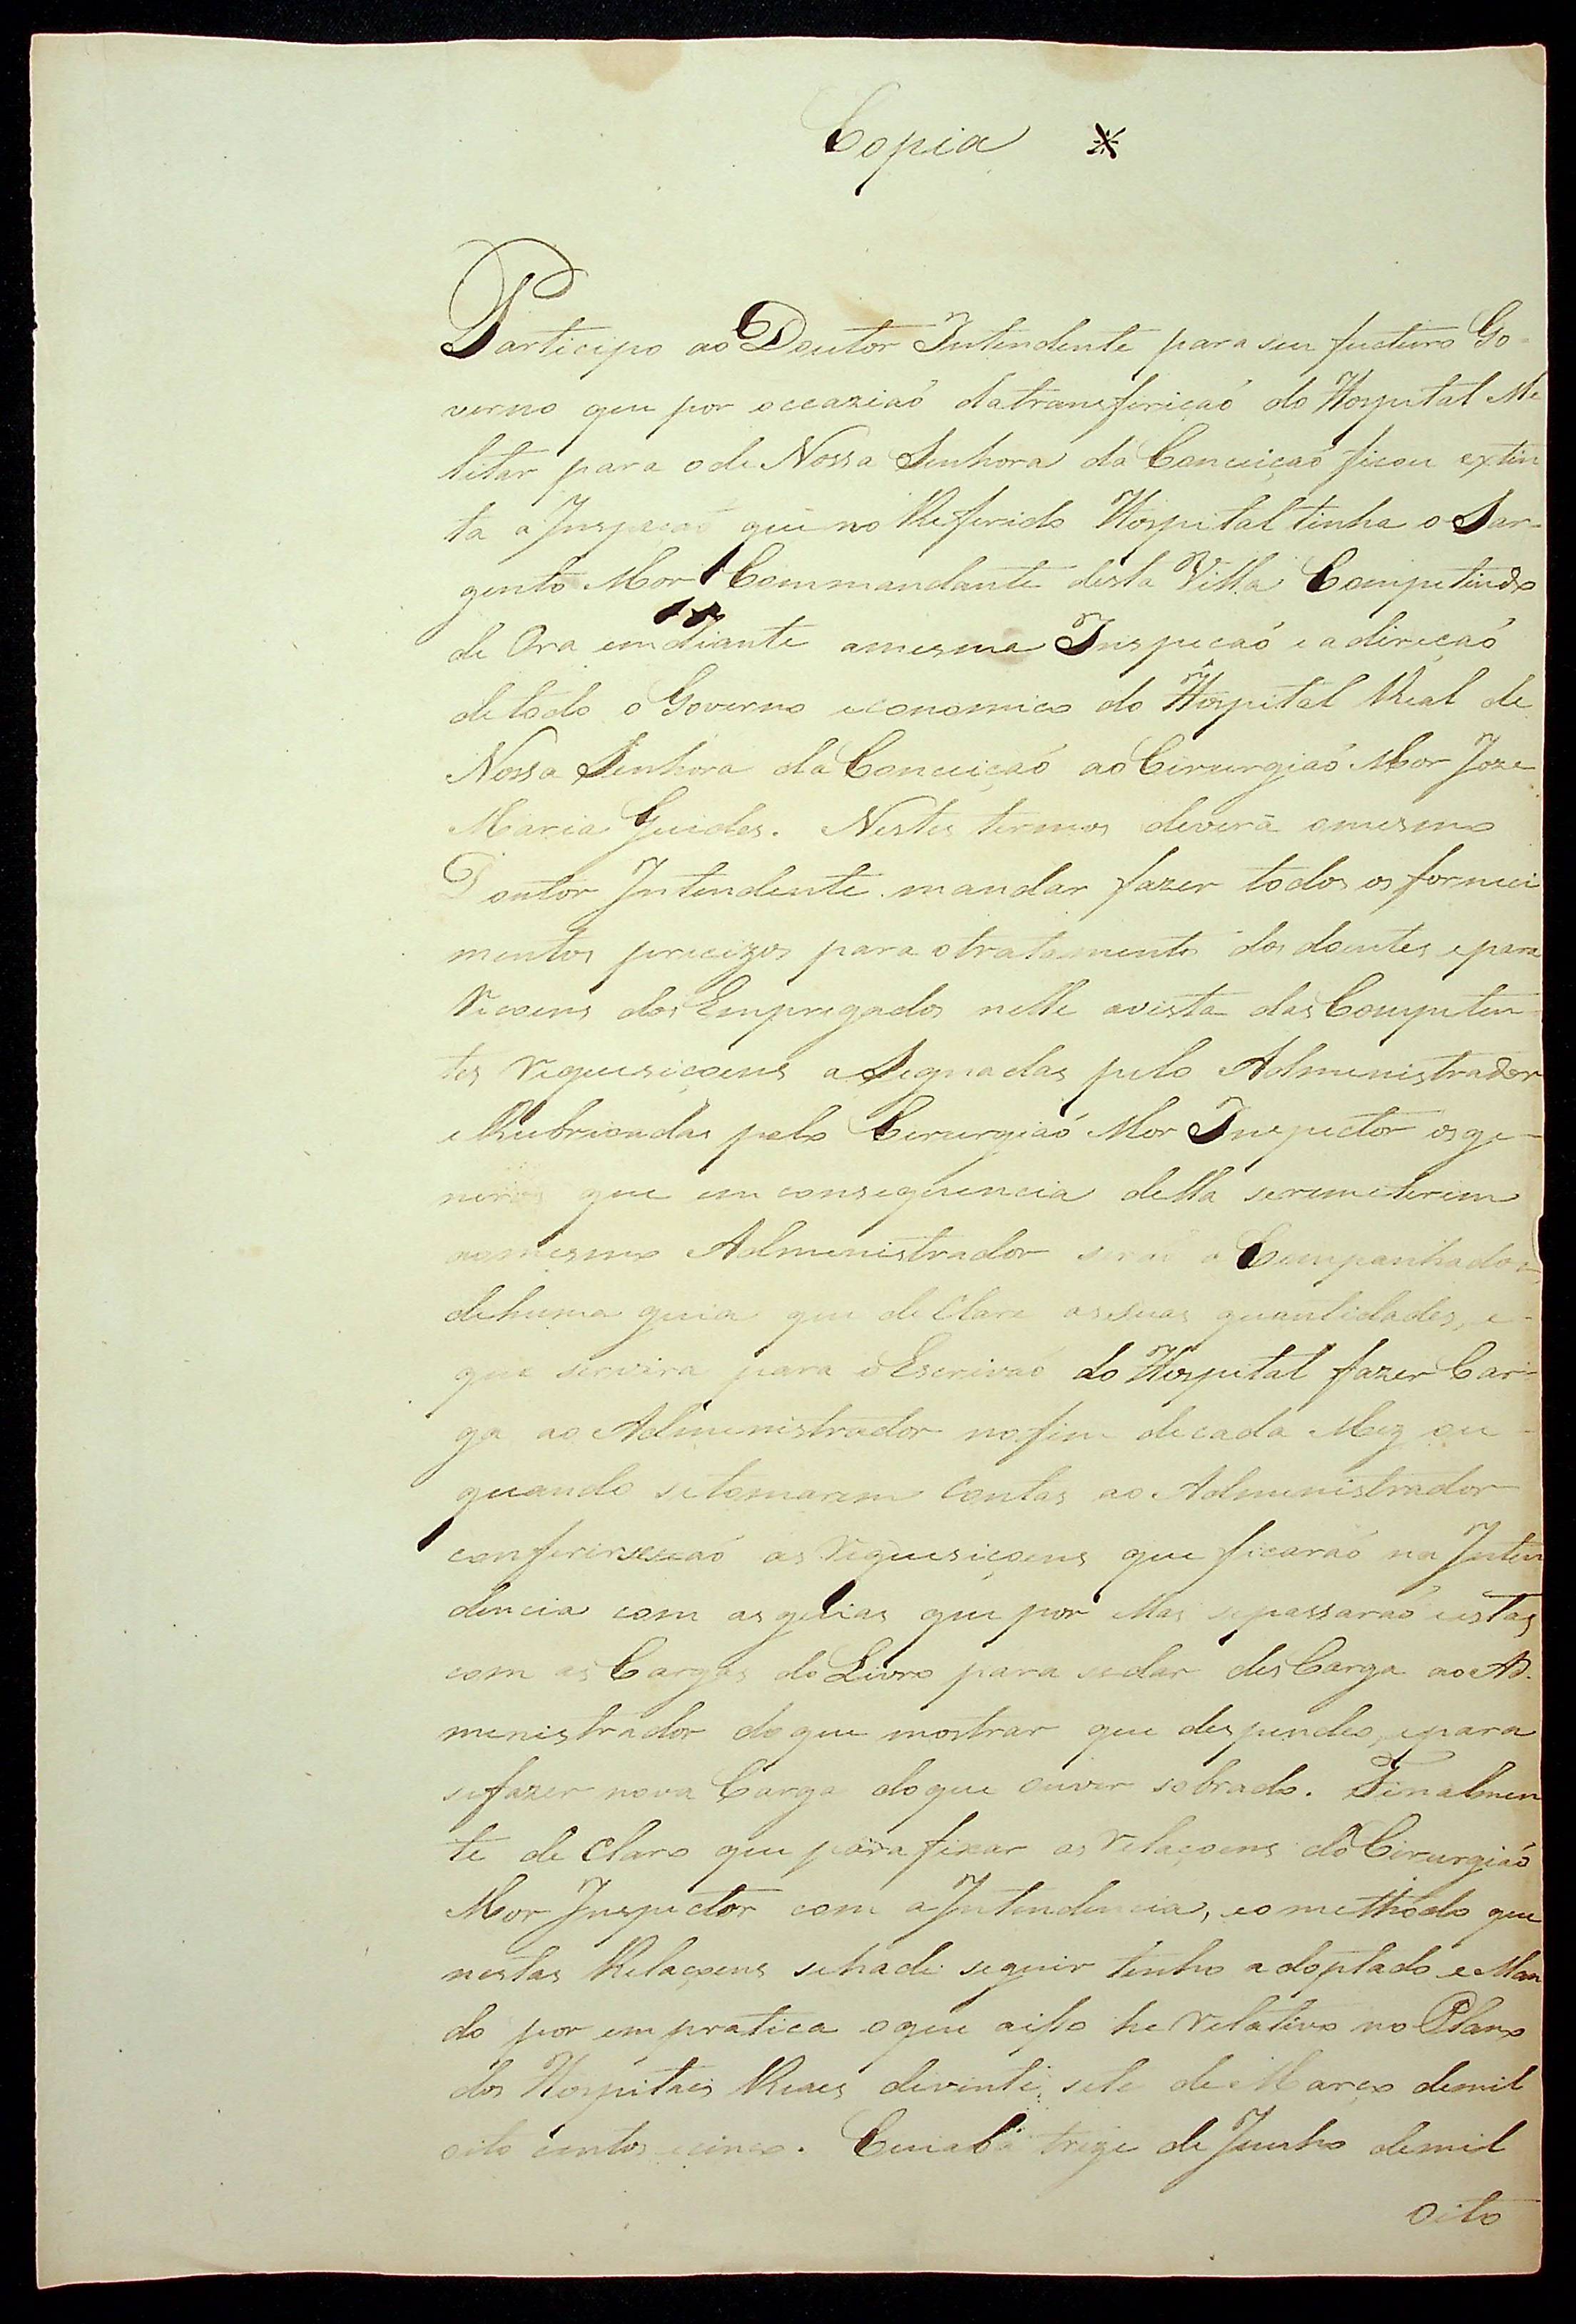 Copia *
Participo ao Doutor Intendente para seu futuro Go-
verno que por occaziaó datransferiçaó do Hospital Me
litar para ode Nossa Senhora da Conceiçaó ficou extin
ta a Inspeçaó que no Referido Hospital tinha o Sar-
gento Mor Commandante desta Villa Competindo
de Ora emdiante amesma Inspecaó e adireçaó
detodo o Governo economico do Hospital Real de
Nossa Senhora da Conceiçaó ao Cirurgiaó Mor Joze
Maria Guides. Nestes termos deverá omesmo
Doutor Intendente mandar fazer todos os forneci
mentos precizos para otratamento dos doentes epara
Raçoens dos Empregados nelle avista das Competen
tes requesiçoens aSegnadas pelo Admenistrador
eRubricadas pelo Cerurgiaó Mor Inspector osge-
neros que em consequencia della seremeterem
aomesmo Admenistrador seraó aCompanhados
dehuma guia que deClare assuas quantidades, e-
que servira para oEscrivaó do Hospital fazer Car-
ga ao Admenistrador nofim decada Mez ou-
quando setomarem Contas ao Admenistrador
conferirseaó as requesiçoens que ficaraó na Inten
dencia com asguias que por ellas sepassaraó eestas
com asCargas do Livro para sedar desCarga ao Ad.
menistrador doque mostrar que despendeo, epara
sefazer nova Carga doque ouver sobrado. Finalmen
te de Claro que para fixar as relaçoens do Cirurgiaó
Mor Inspector com aIntendencia, eo methodo que
nestas Relaçoens sehade seguir tenho adoptado eMan
do por empratica oque aisso he relativo no Plano
dos Hospitaes Reaes devinte sete de Março demil
oito centos ecinco. Cuiabá treze de Junho demil
oito